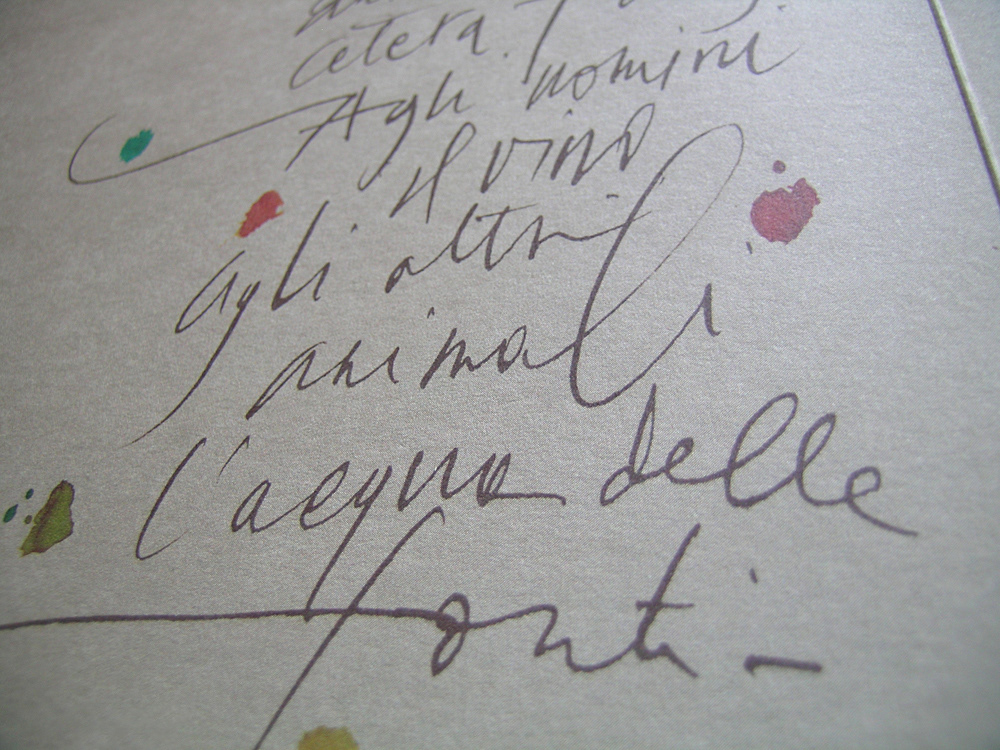 cetera.
Agli uomini
il vino
agli altri
animali
l'acqua delle
fonti -